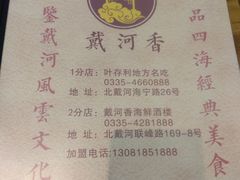 戴河香
品四海經典美食
鑒戴河風雲文化
1分店：叶存利地方名吃
0335-4660888
地 址：北戴河海宁路26号
2分店：戴河香海鲜酒楼
0335-4281888
地 址：北戴河联峰路169-8号
加盟电话:13081851888